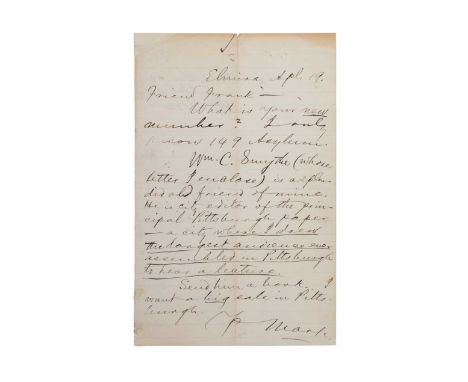 Elmira, Apl. 19.
Friend Frank—
What is your new
number? I only
know 149 Asylum.
Wm. C. Smythe (whose
letter I enclose) is a splen-
did old friend of mine.
He is city editor of the prin-
cipal Pittsburgh paper
— a city where I drew
the largest audience ever
assembled in Pittsburgh
to hear a lecture.
Send him a book. I
want a big sale in Pitts-
burgh.
Mark.